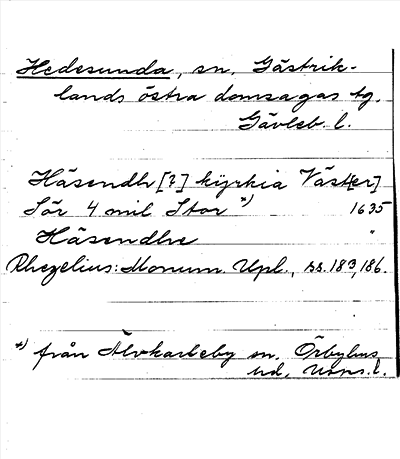 Hedesunda, sn. Gästrik-
lands östra domsagas tg.
Gävleb. l.
Häsendh [?] kyrkia Väst[er]
Sör 4 mil Stor *) 1635
Häsendhe "
Rhezelius: Monum. Upl., ss. 183, 186.
*) från Älvkarleby sn. Örbyhus
hd, Upps. l.